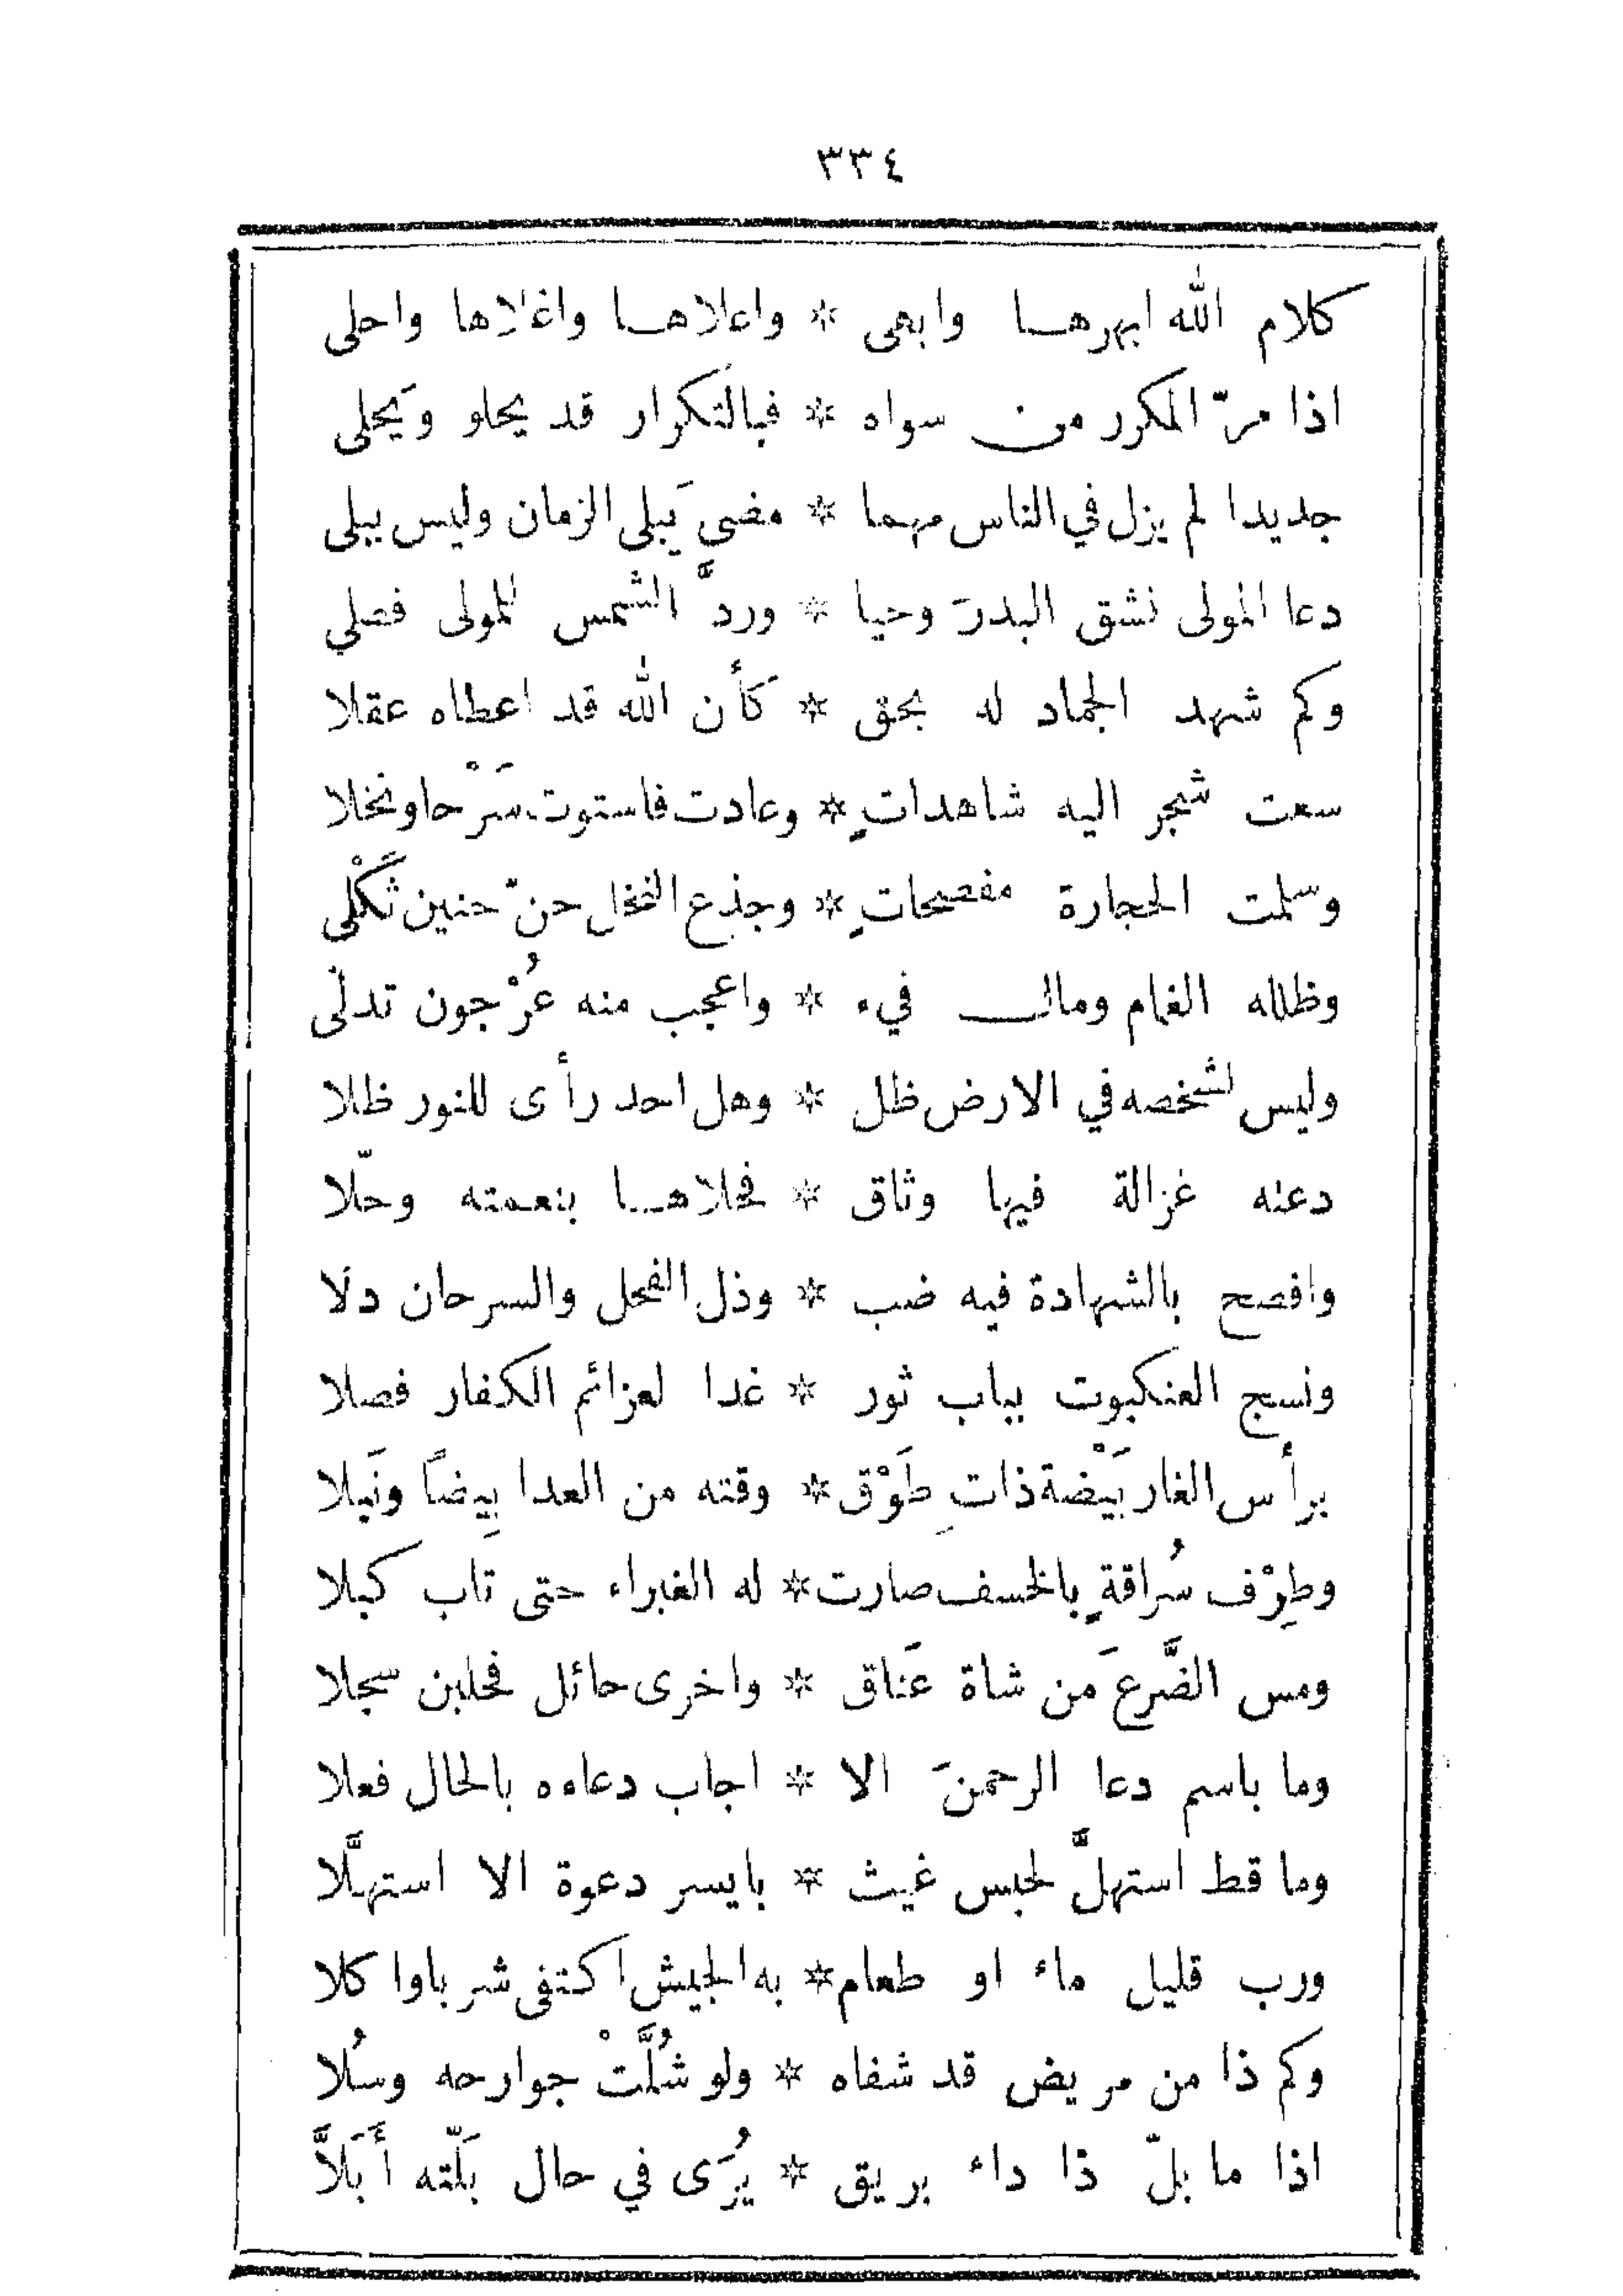 ٣٣٤
كلام الله ابهرها وابهى * واعلاها واغلاها واحلى
اذا مرّ المكرر من سواه * فبالتكرار قد يحلو ويَحلى
جديدا لم يزل في الناس مهما * مضى يَبلى الزمان وليس يبلى
دعا المولى نشق البدرَ وحيا * وردَّ الشمس للمولى فصلي
وكم شهد الجماد له بحق * كأن الله قد اعطاه عقلا
سعت شجر اليه شاهداتٍ * وعادت فاستوت سَرْحا ونخلا
وسلمت الحجارة مفصحاتٍ * وجذع النخل حنّ حنين ثَكْلى
وظلله الغمام ومال فيء * واعجب منه عُرْجون تدلّى
وليس لشخصه في الارض ظل * وهل احد رأى للنور ظلا
دعته غزالة فيها وثاق * فخلاها بنعمته وحلّا
وافصح بالشهادة فيه ضب * وذل الفحل والسرحان دلا
ونسج العنكبوت بباب ثور * غدا لعزائم الكفار فصلا
برأس الغار بَيْضة ذاتِ طَوْق * وقته من العدا بِيضاً ونَبلا
وطِرْف سُراقةٍ بالخسف صارت * له الغبراء حتى تاب كبلا
ومس الضَّرعَ من شاة عَناق * واخرى حائل فحلبن سجلا
وما باسم دعا الرحمنَ الا * اجاب دعاءه بالحال فعلا
وما قط استهلَّ لحبس غيث * بايسر دعوة الا استهلَّا
ورب قليل ماء او طعام * به الجيش اكتفى شربا واكلا
وكم ذا من مريض قد شفاه * ولو شُلَّتْ جوارحه وسُلا
اذا ما بلّ ذا داء بريق * يُرَى في حال بَلّته أَبَلاَّ